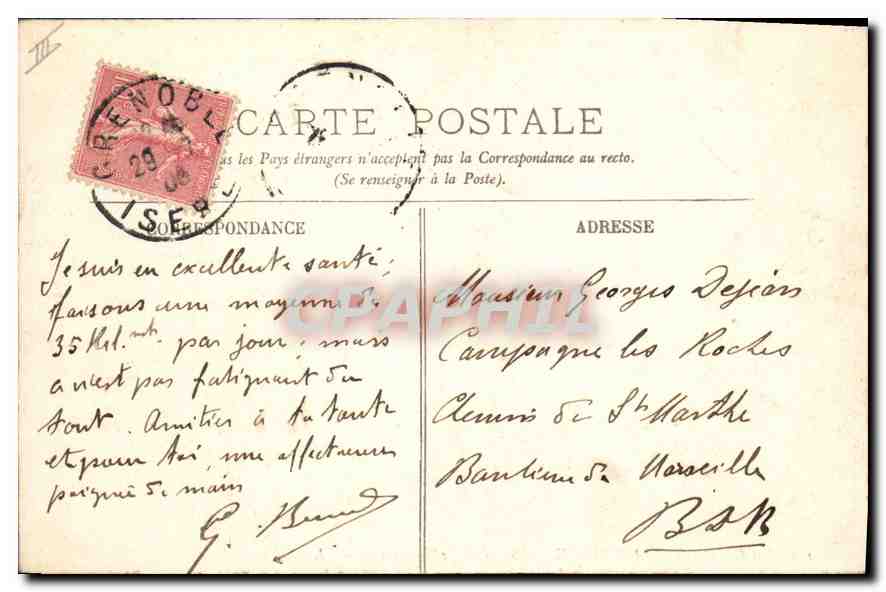 III
GRENOBLE
29
ISERE
CARTE POSTALE
les Pays étrangers n'acceptent pas la Correspondance au recto.
(Se renseigner à la Poste).
CORRESPONDANCE
ADRESSE
Je suis en excellente santé,
faisons une moyenne de
35 Kil. par jour, mais
ce n'est pas fatiguant du
tout. Amitiés à ta tante
et pour toi, une affectueuse
poignée de main
G.
Monsieur Georges Dejean
Campagne les Roches
Chemin de Ste Marthe
Banlieue de Marseille
B d R
CPAPHIL